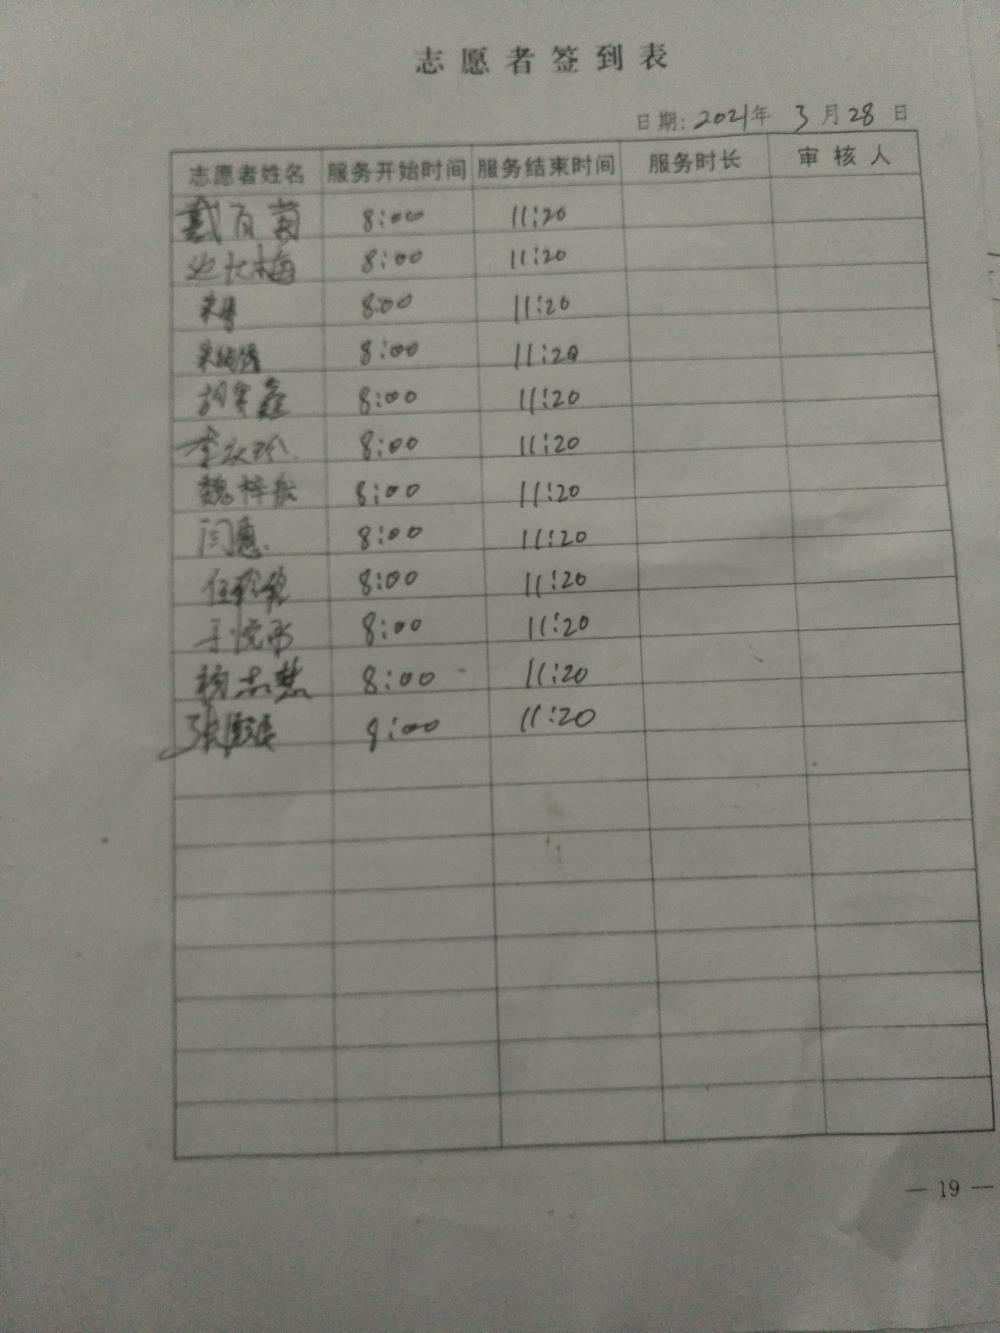 志愿者签到表
日期: 2021年 3月28日
志愿者姓名 服务开始时间 服务结束时间 服务时长 审核人
戴百菊 8:00 11:20
8:00 11:20
8:00 11:20
8:00 11:20
胡 鑫 8:00 11:20
李 玲 8:00 11:20
魏梓 8:00 11:20
闫惠 8:00 11:20
任 8:00 11:20
于悦 8:00 11:20
杨志慧 8:00 11:20
张 9:00 11:20
— 19 —